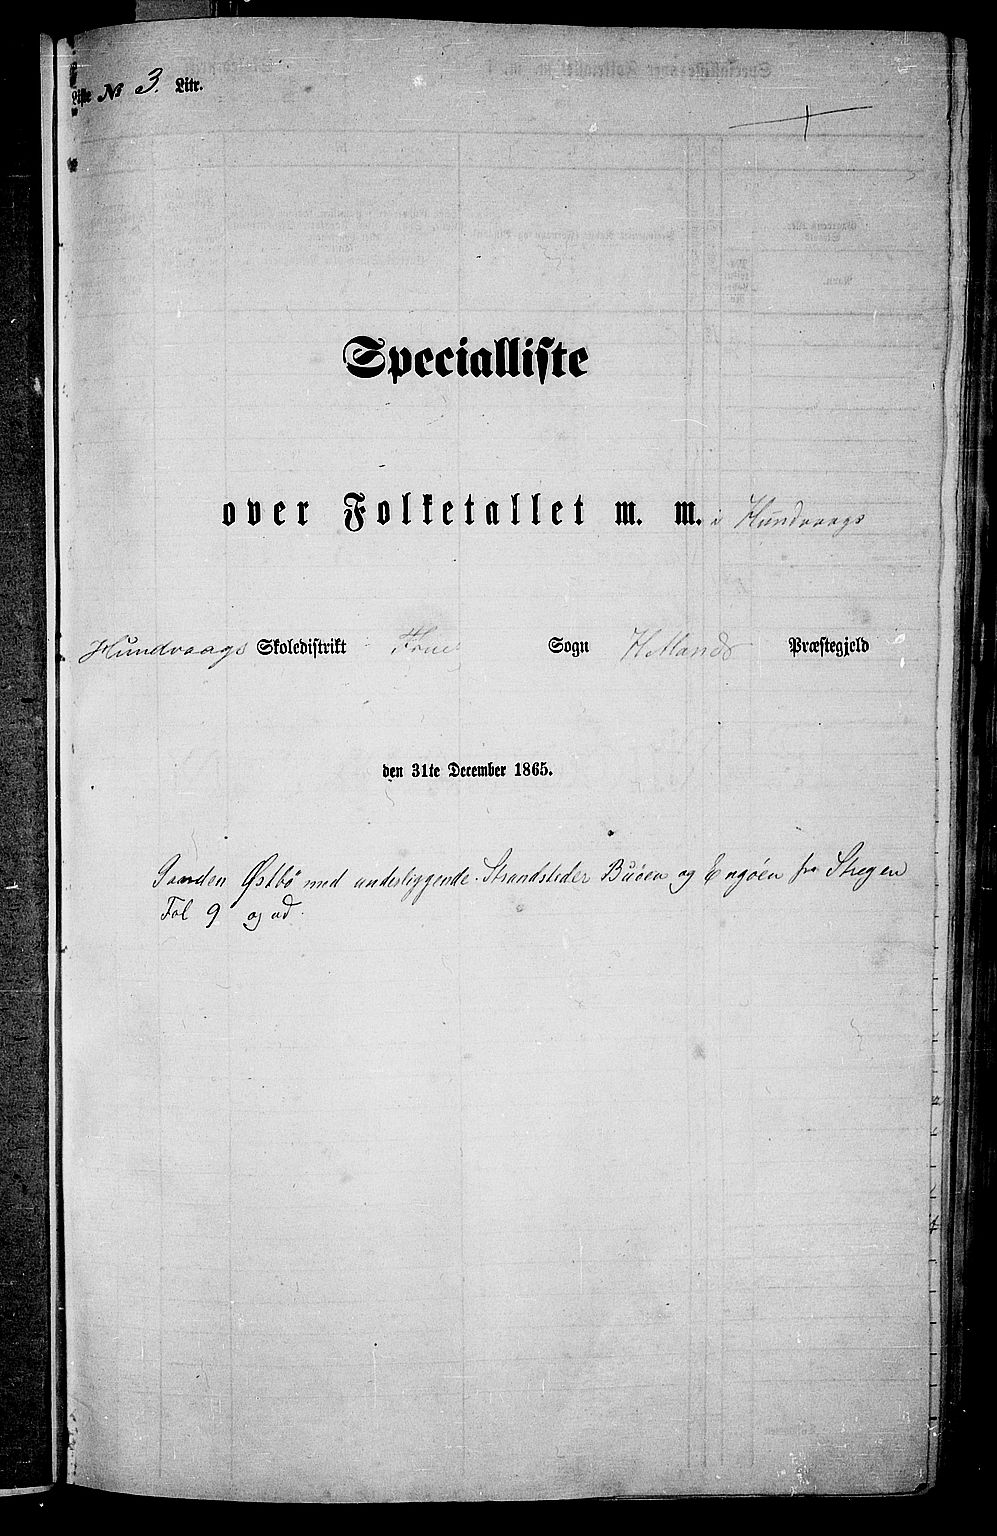 Liste № 3. Litr.
Specialliste
over Folketallet m. m. i Hundvaags
Hundvaags Skoledistrikt Frue Sogn Hetlands Præstegjeld
den 31te December 1865.
Gaarden Østbö med underliggende Strandsteder Buöen og Engöen fra Stregen
Fol 9 og ud.